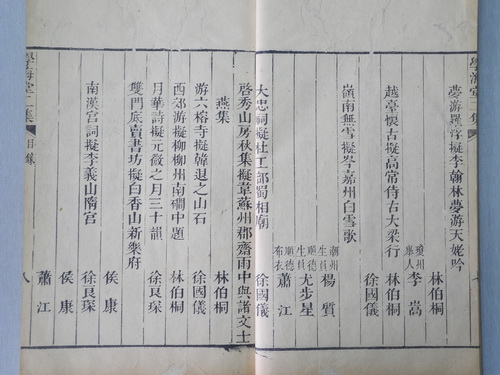 學海堂二集
夢游羅浮擬李翰林夢游天姥吟
林伯桐
瓊州舉人 李嵩
越臺懷古擬高常侍古大梁行
林伯桐
徐國儀
嶺南無雪擬岑嘉州白雪歌
潮州生員 楊質
順德生員 尤步星
順德布衣 蕭江
大忠祠擬杜工部蜀相廟
徐國儀
啓秀山房秋集擬韋蘇州郡齋雨中與諸文士
燕集
林伯桐
游六榕寺擬韓退之山石
徐國儀
西郊游擬柳柳州南磵中題
林伯桐
月華詩擬元微之月三十韻
徐良琛
雙門底賣書坊擬白香山新樂府
侯康
徐良琛
南漢宮詞擬李義山隋宮
侯康
蕭江
學海堂二集
目錄
八